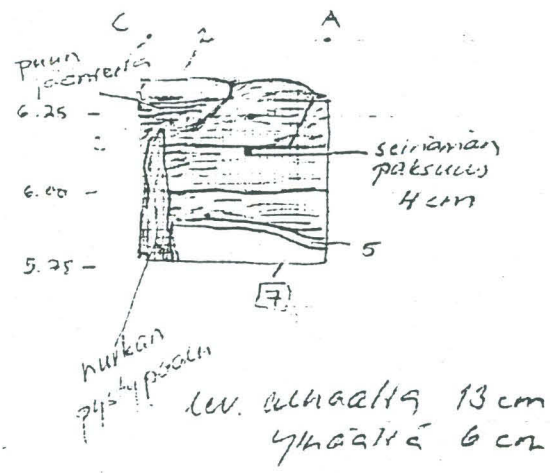 C 2 A
puun
jäänteitä
6.25 -
seinämän
paksuus
4 cm
6.00 -
5
5.75 -
7
nurkan
pystypaalu
lev. alhaalta 13 cm
yhäältä 6 cm